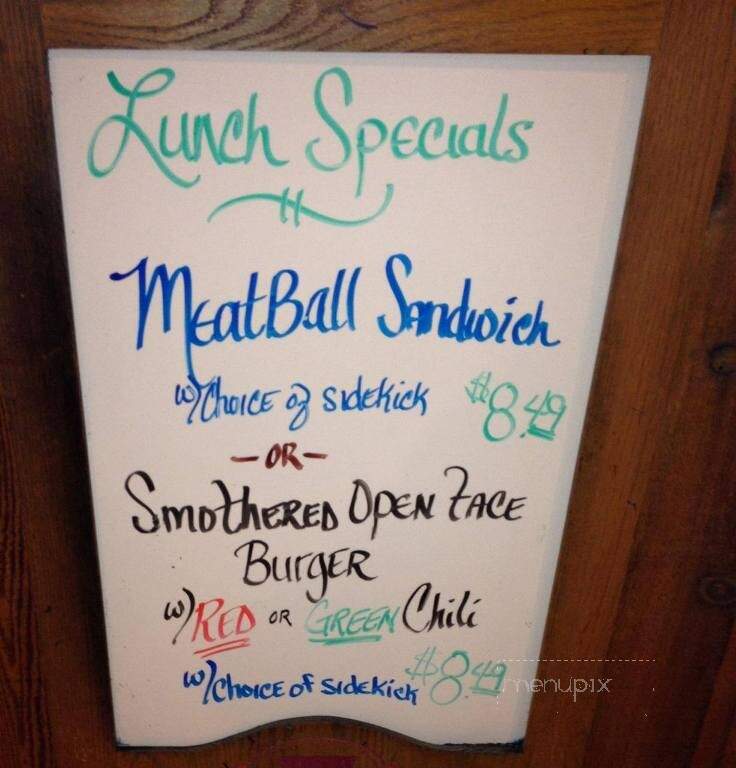 Lunch Specials
MeatBall Sandwich
w/Choice of Sidekick $8.49
-OR-
Smothered Open Face
Burger
w/RED OR GREEN Chili
w/Choice of Sidekick $8.49
menupix